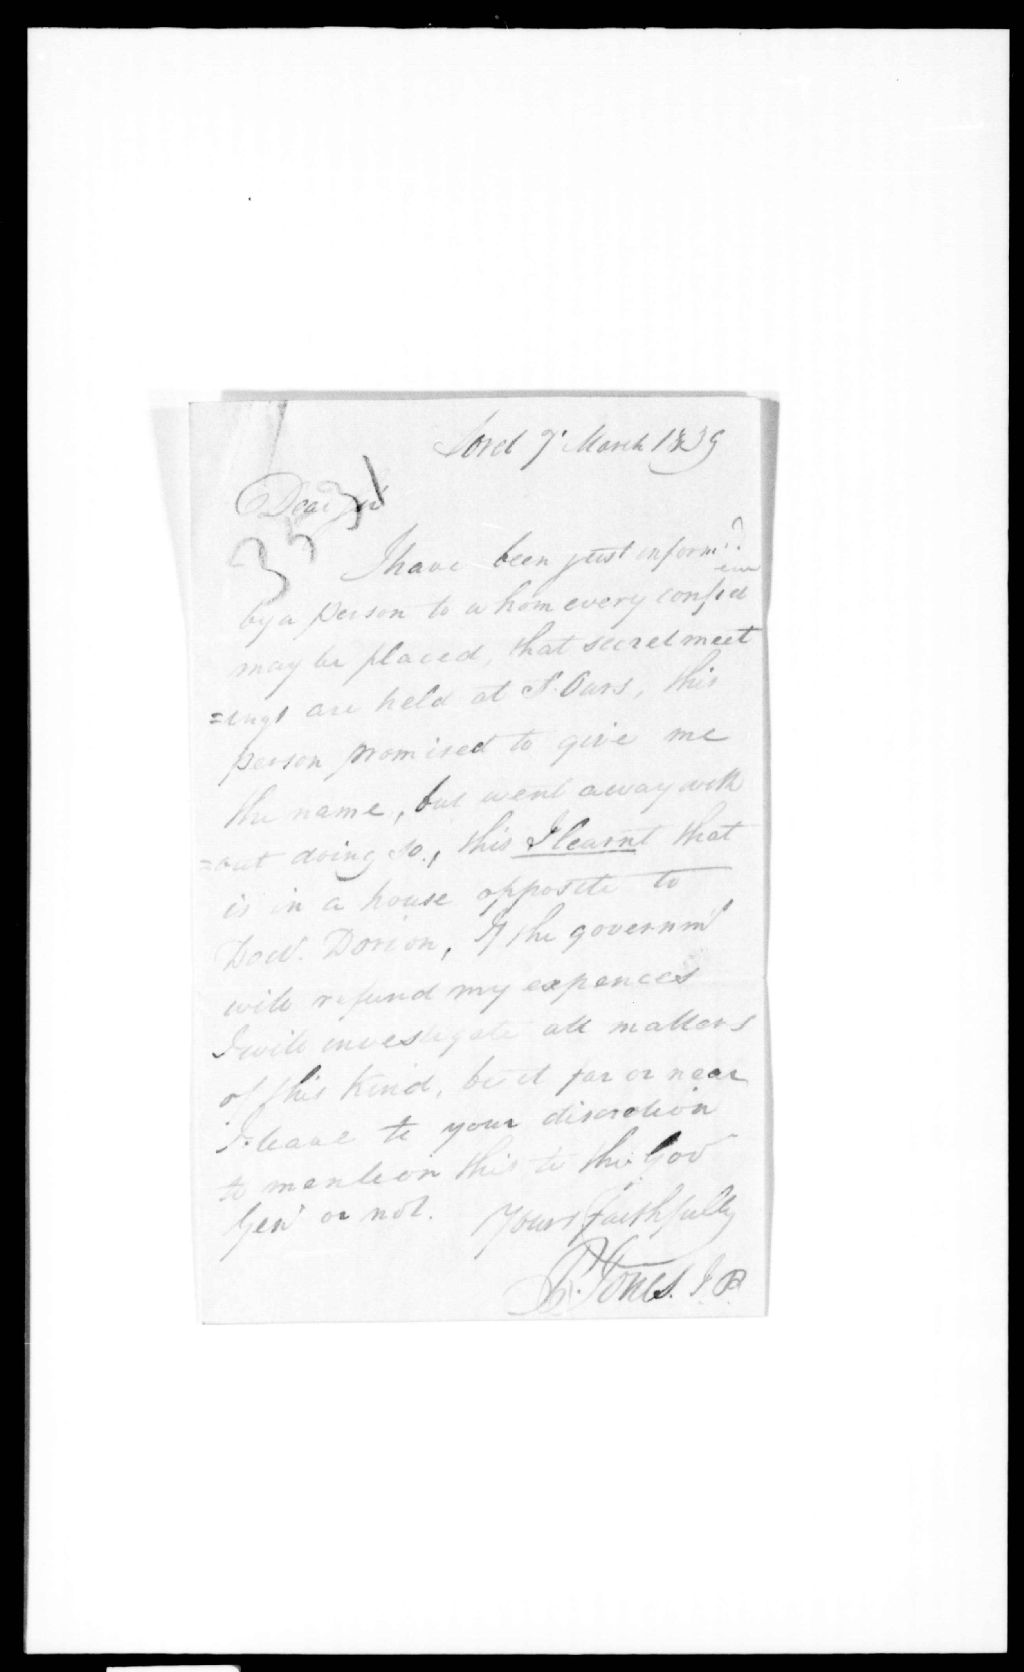 Sorel 7. March 1839
Dear Sir
3531
I have been just inform'd
by a person to whom every confid
ence
may be placed, that secret meet
=ings are held at St. Ours, this
person promised to give me
the name, but went away with
=out doing so, this I learnt that
is in a house opposite to
Doct. Dorion, If the governmt
will refund my expences
I will investigate all matters
of this kind, be it far or near
I leave to your discretion
to mention this to the Gov
Genl or not. Yours faithfully
Jones. J P.